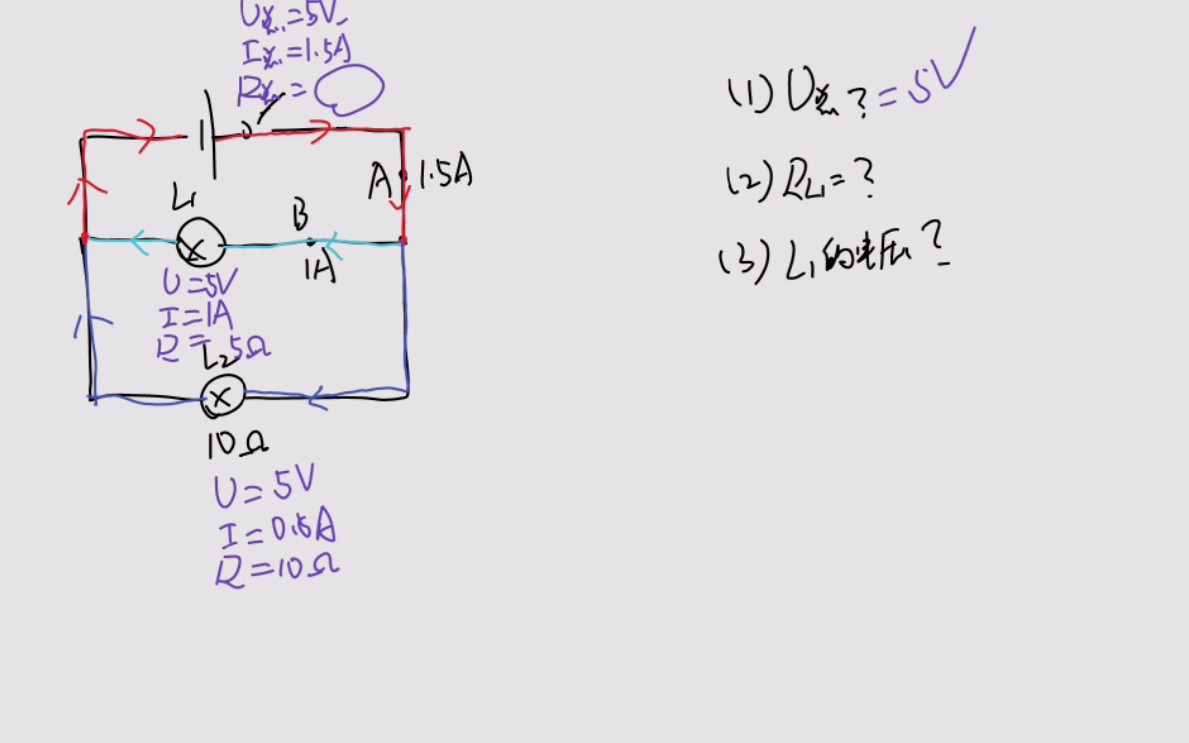 U总=5V
I总=1.5A
R总=
A 1.5A
L1
B
1A
U=5V
I=1A
R=5Ω
L2
10Ω
U=5V
I=0.5A
R=10Ω
(1) U总?=5V✓
(2) RL1=?
(3) L1的电压?